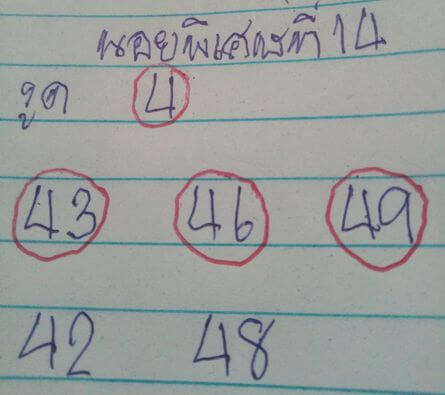 ฮนอยพิเศษที่ 14
รูด 4
43 46 49
42 48